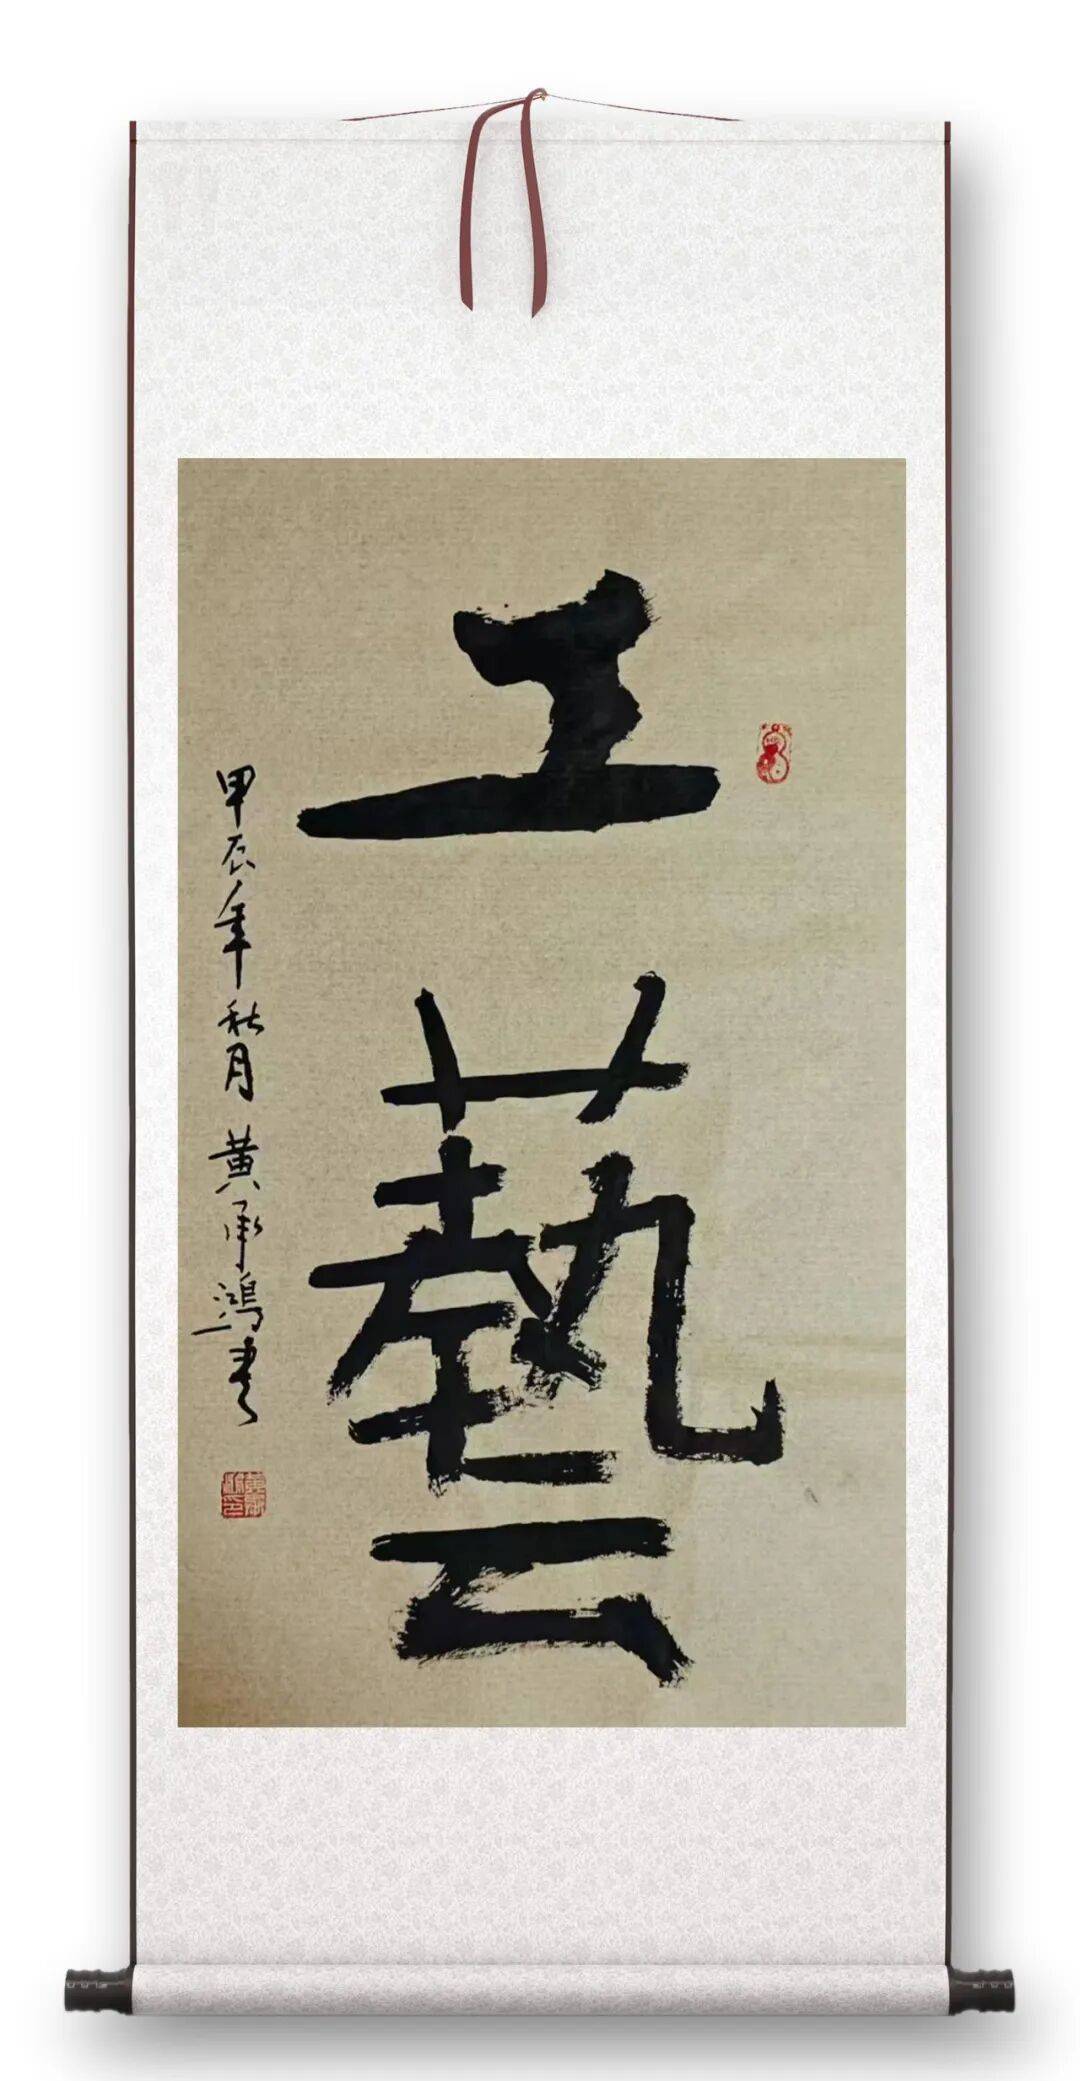 工藝
甲辰年秋月黄承鴻書